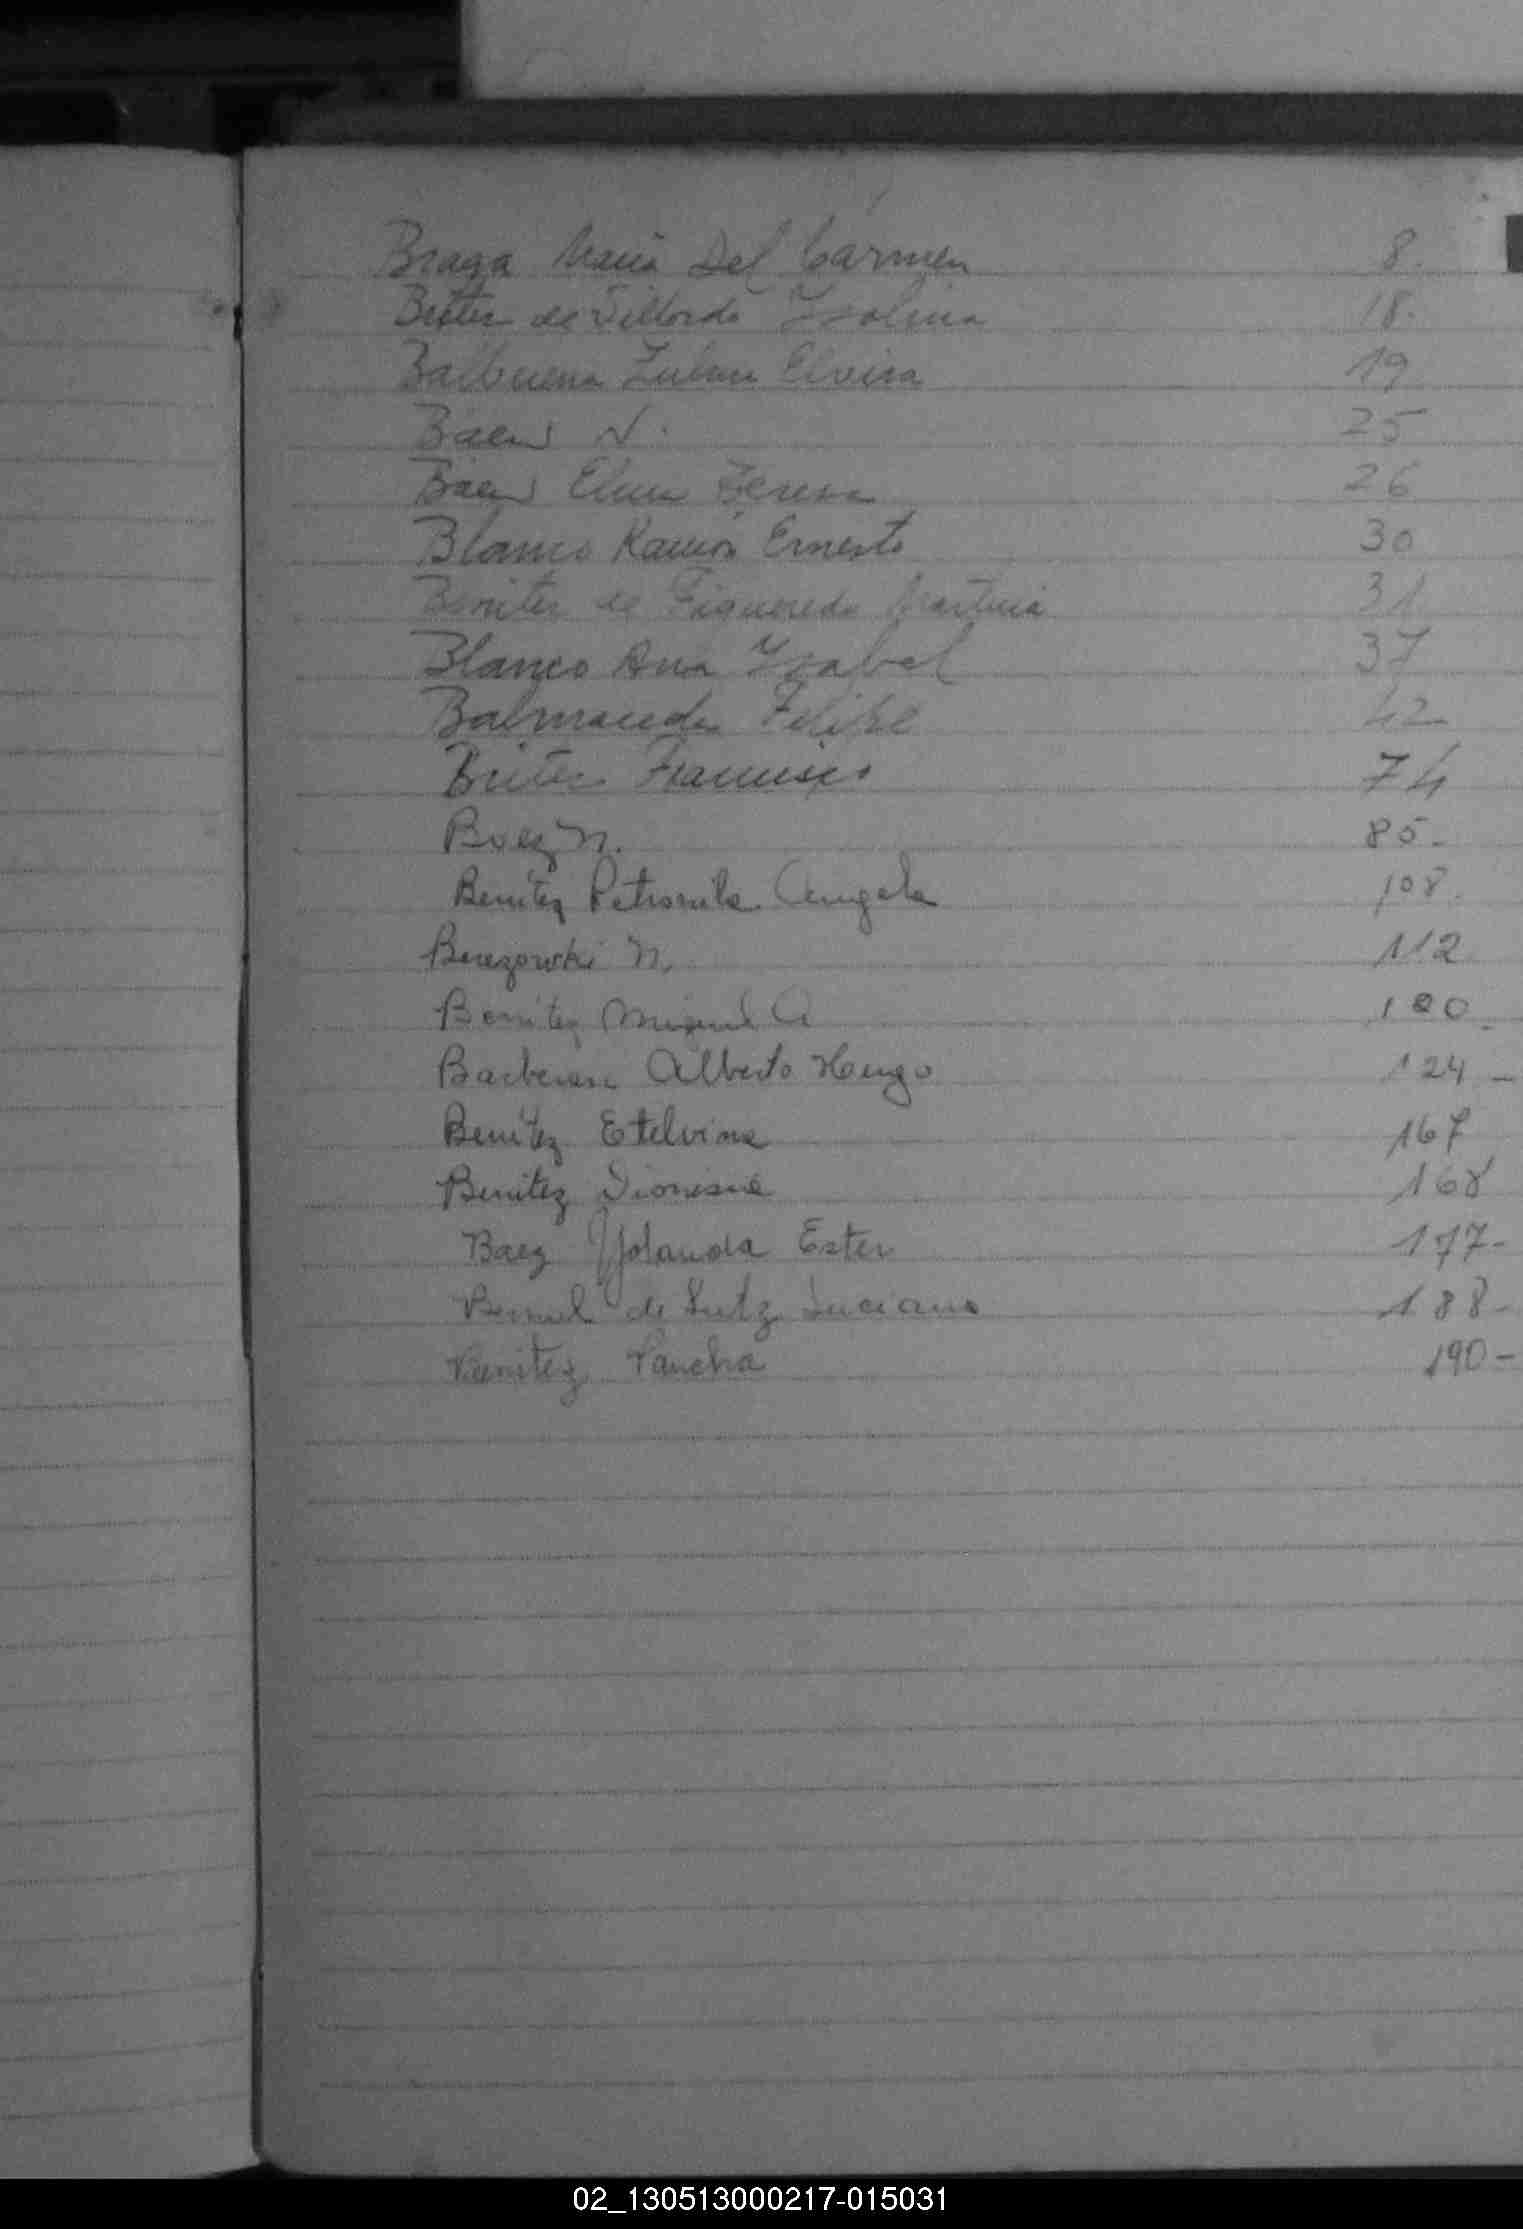 Braga Maria Del Carmen 8.
Britez de Villordo Ysolina 18.
Balbuena Zulma Elvira 19
Baez N. 25
Baez Elena Teresa 26
Blanco Ramón Ernesto 30
Benitez de Figueredo Martina 31
Blanco Ana Ysabel 37
Balmaceda Felipe 42
Britez Francisco 74
Baez N. 85-
Benitez Petronila Angela 108.
Berezowski N. 112
Benitez Miguel A 120-
Alberto Hugo 124-
Benitez Etelvina 167
Benitez Dionisia 168
Baez Yolanda Ester 177-
Bernal de Luciana 188-
Benitez Pancha 190-
02_130513000217-015031